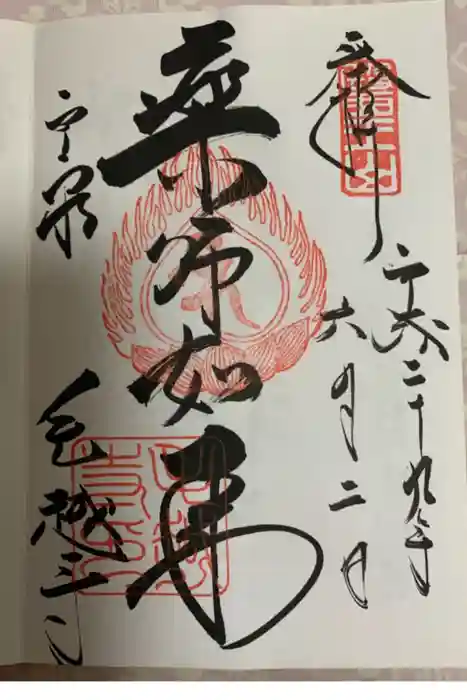 奉拝
平成二十九年
六月二日
薬師如来
平泉
毛越寺